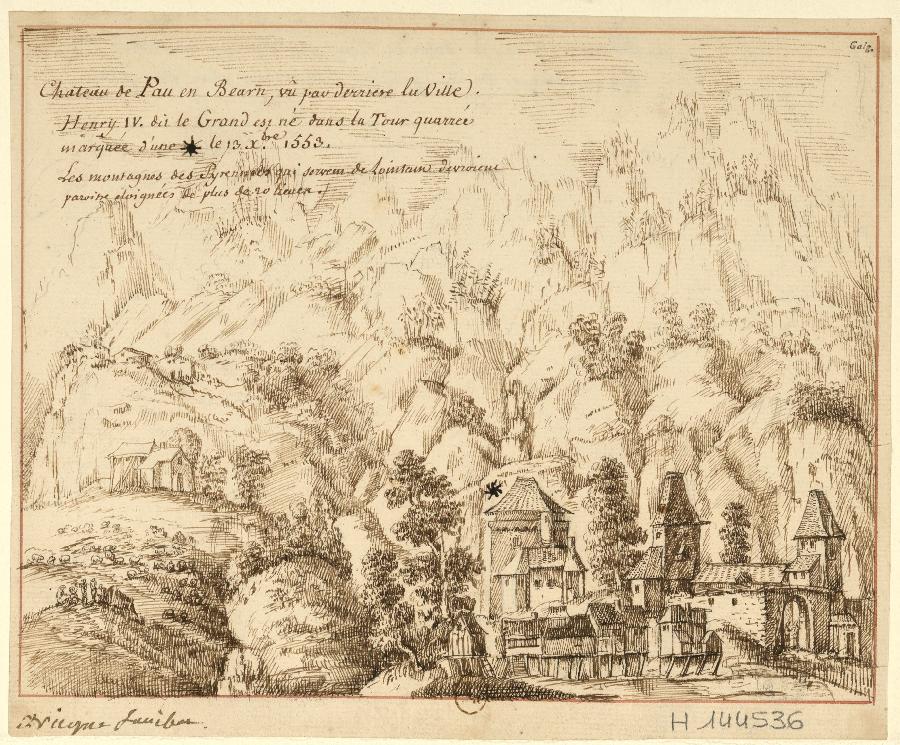 Gaig.
Chateau de Pau en Bearn, vû par derriere la Ville.
Henry IV. dit le Grand est né dans la Tour quarrée
marquée d'une ✶ le 13. X.bre 1553.
Les montagnes des Pyrennées qui servent de lointain devroient
paroitre eloignées de plus de 20 lieues.
H 144536